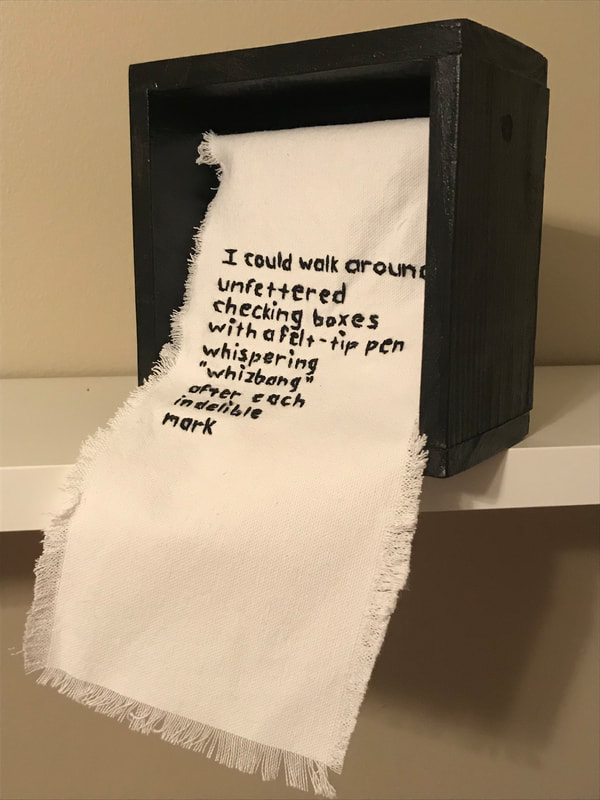 I could walk around
unfettered
checking boxes
with a felt-tip pen
whispering
"whizbang"
after each
indelible
mark